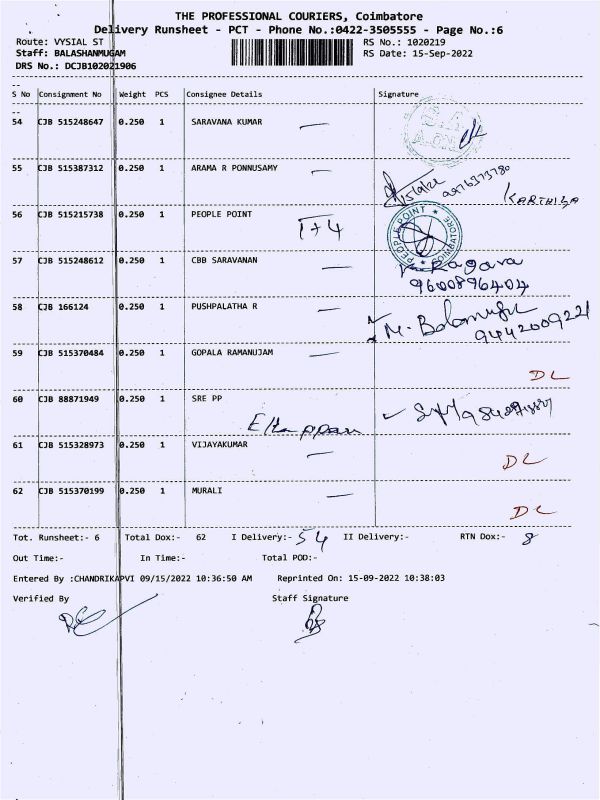 THE PROFESSIONAL COURIERS, Coimbatore
Delivery Runsheet - PCT - Phone No.:0422-3505555 - Page No.:6
Route: VYSIAL ST RS No.: 1020219
Staff: BALASHANMUGAM RS Date: 15-Sep-2022
DRS No.: DCJB102021906
S No Consignment No Weight PCS Consignee Details Signature
54 CJB 515248647 0.250 1 SARAVANA KUMAR
55 CJB 515387312 0.250 1 ARAMA R PONNUSAMY
KARTHIGA
56 CJB 515215738 0.250 1 PEOPLE POINT 1+4 PEOPLE POINT COIMBATORE
57 CJB 515248612 0.250 1 CBB SARAVANAN Ragava
9600896404
58 CJB 166124 0.250 1 PUSHPALATHA R M.
9442009221
59 CJB 515370484 0.250 1 GOPALA RAMANUJAM
DL
60 CJB 88871949 0.250 1 SRE PP
Ellappan
61 CJB 515328973 0.250 1 VIJAYAKUMAR
DL
62 CJB 515370199 0.250 1 MURALI
DL
Tot. Runsheet:- 6 Total Dox:- 62 I Delivery:- 54 II Delivery:- RTN Dox:- 8
Out Time:- In Time:- Total POD:-
Entered By :CHANDRIKAPVI 09/15/2022 10:36:50 AM Reprinted On: 15-09-2022 10:38:03
Verified By Staff Signature